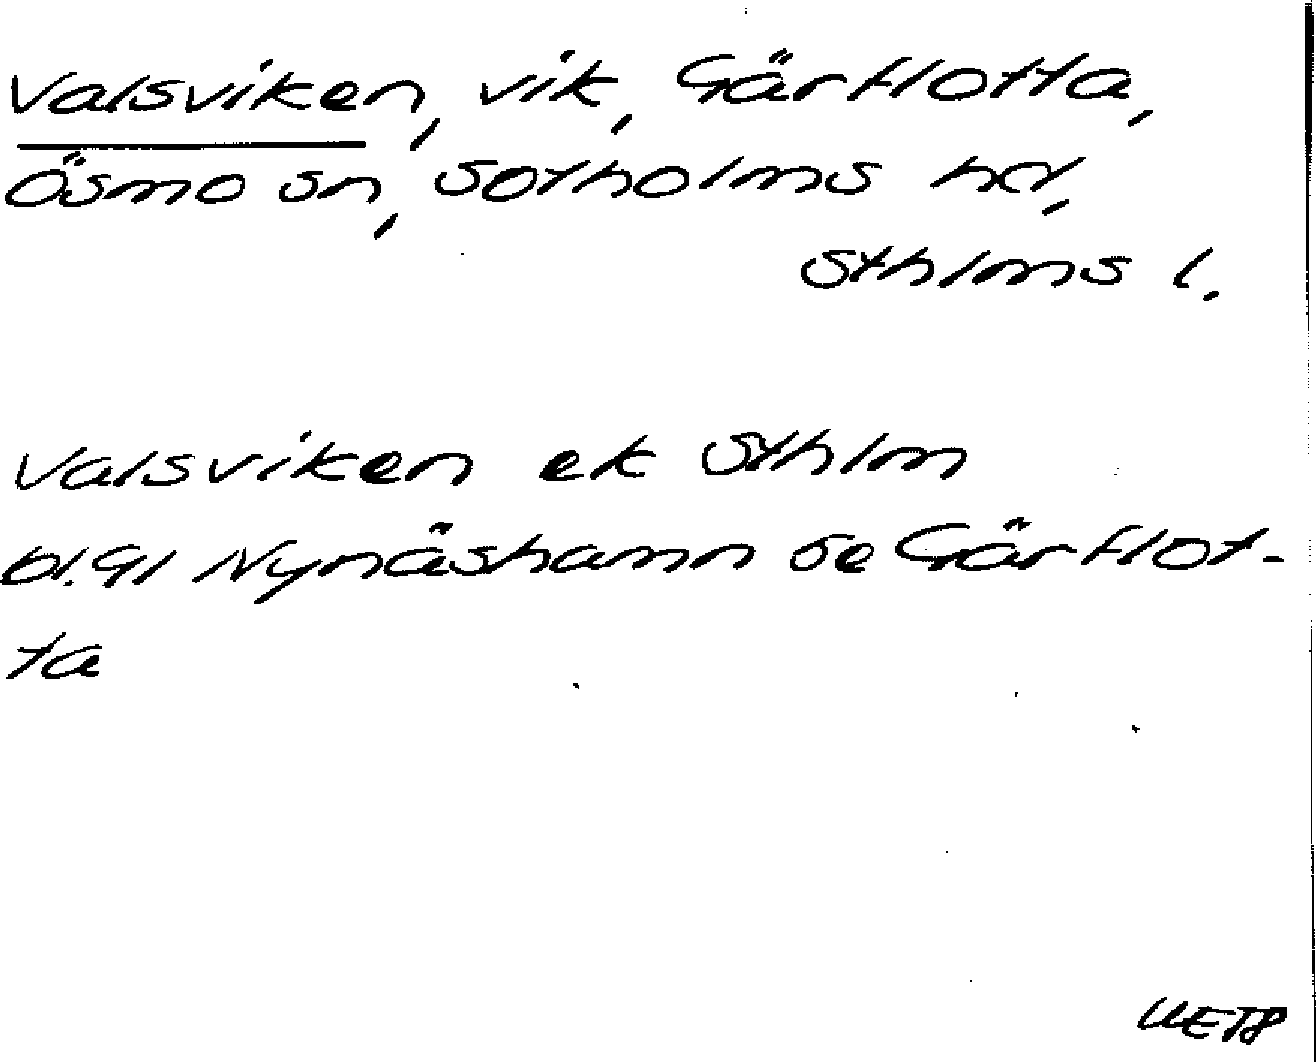 Valsviken, vik, Gårflotta,
Ösmo sn, Sotholms hd,
Sthlms l.
Valsviken ek Sthlm
bl.91 Nynäshamn se Gårflot-
ta